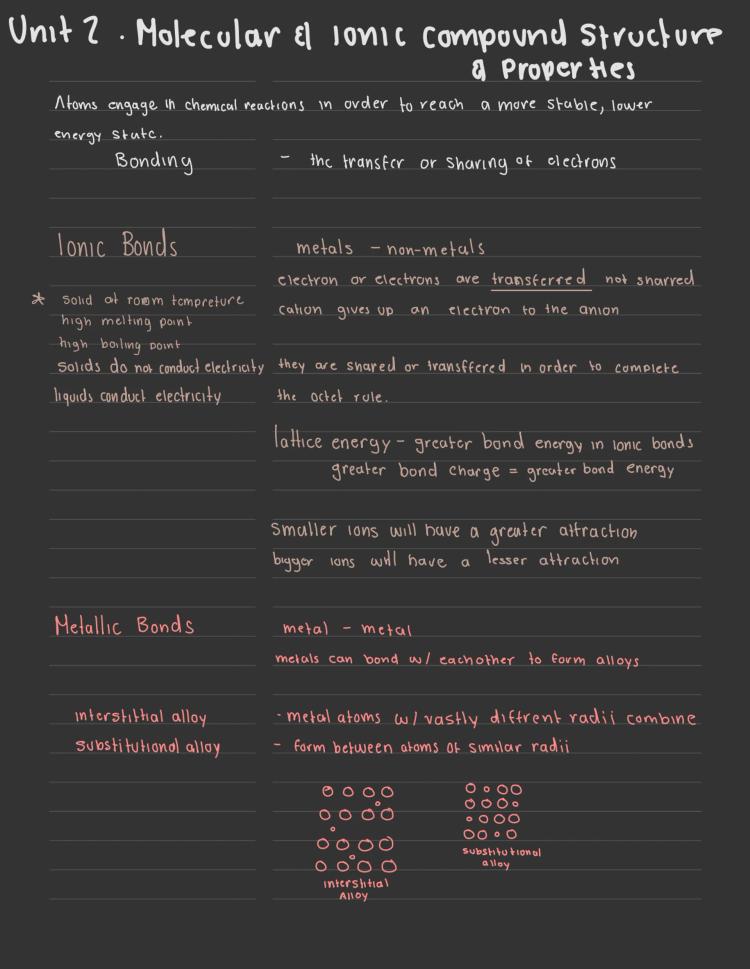 Unit 2 . Molecular & Ionic Compound Structure
& Properties
Atoms engage in chemical reactions in order to reach a more stable, lower
energy state.
Bonding - the transfer or sharing of electrons
Ionic Bonds metals - non-metals
electron or electrons are transferred not sharred
* solid at room tempreture
cation gives up an electron to the anion
high melting point
high boiling point
solids do not conduct electricity they are shared or transffered in order to complete
liquids conduct electricity the octet rule.
lattice energy - greater bond energy in ionic bonds
greater bond charge = greater bond energy
Smaller ions will have a greater attraction
bigger ions will have a lesser attraction
Metallic Bonds metal - metal
metals can bond w/ eachother to form alloys
interstitial alloy - metal atoms w/ vastly diffrent radii combine
substitutional alloy - form between atoms of similar radii
substitutional
alloy
interstitial
Alloy